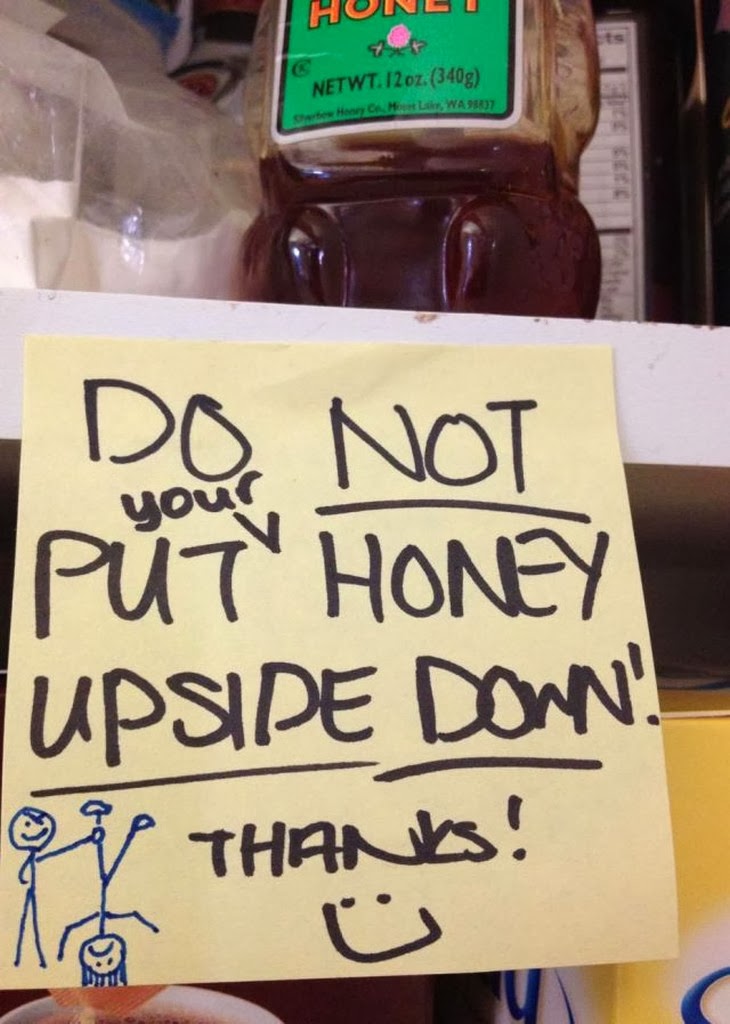 HONEY
NET WT. 12 oz. (340g)
Honey Co., Moses Lake, WA 98837
DO NOT
your
PUT HONEY
UPSIDE DOWN!
THANKS!